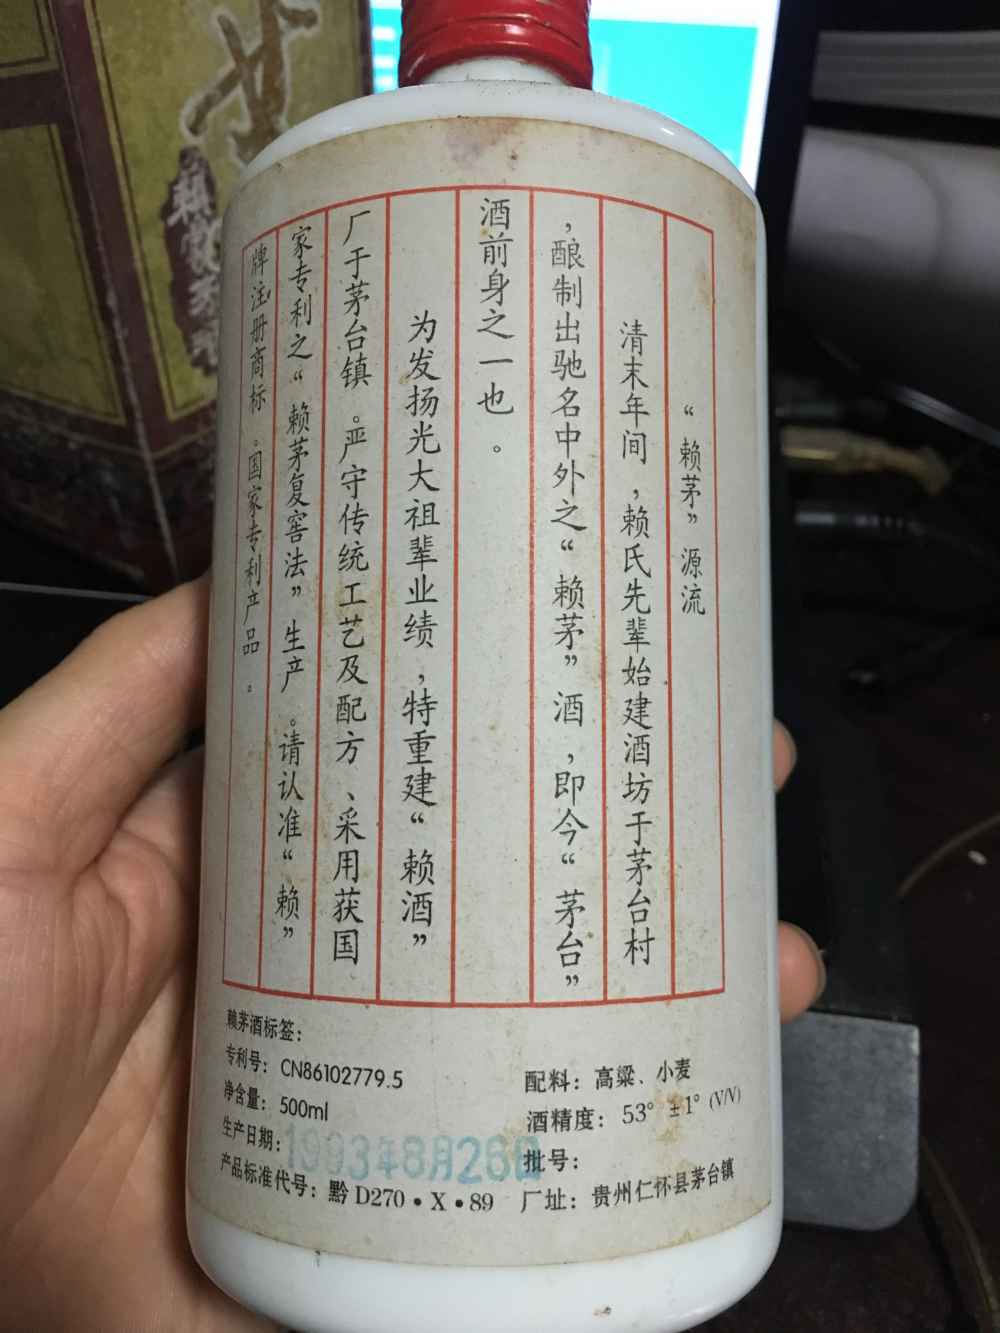 “赖茅”源流
清末年间，赖氏先辈始建酒坊于茅台村
，酿制出驰名中外之“赖茅”酒，即今“茅台”
酒前身之一也。
为发扬光大祖辈业绩，特重建“赖酒”
厂于茅台镇。严守传统工艺及配方、采用获国
家专利之“赖茅复窖法”生产。请认准“赖”
牌注册商标。国家专利产品。
赖茅酒标签：
专利号：CN86102779.5
净含量：500ml
生产日期：1993年8月26日
产品标准代号：黔D270·X·89
配料：高粱、小麦
酒精度：53°±1°(V/V)
批号：
厂址：贵州仁怀县茅台镇